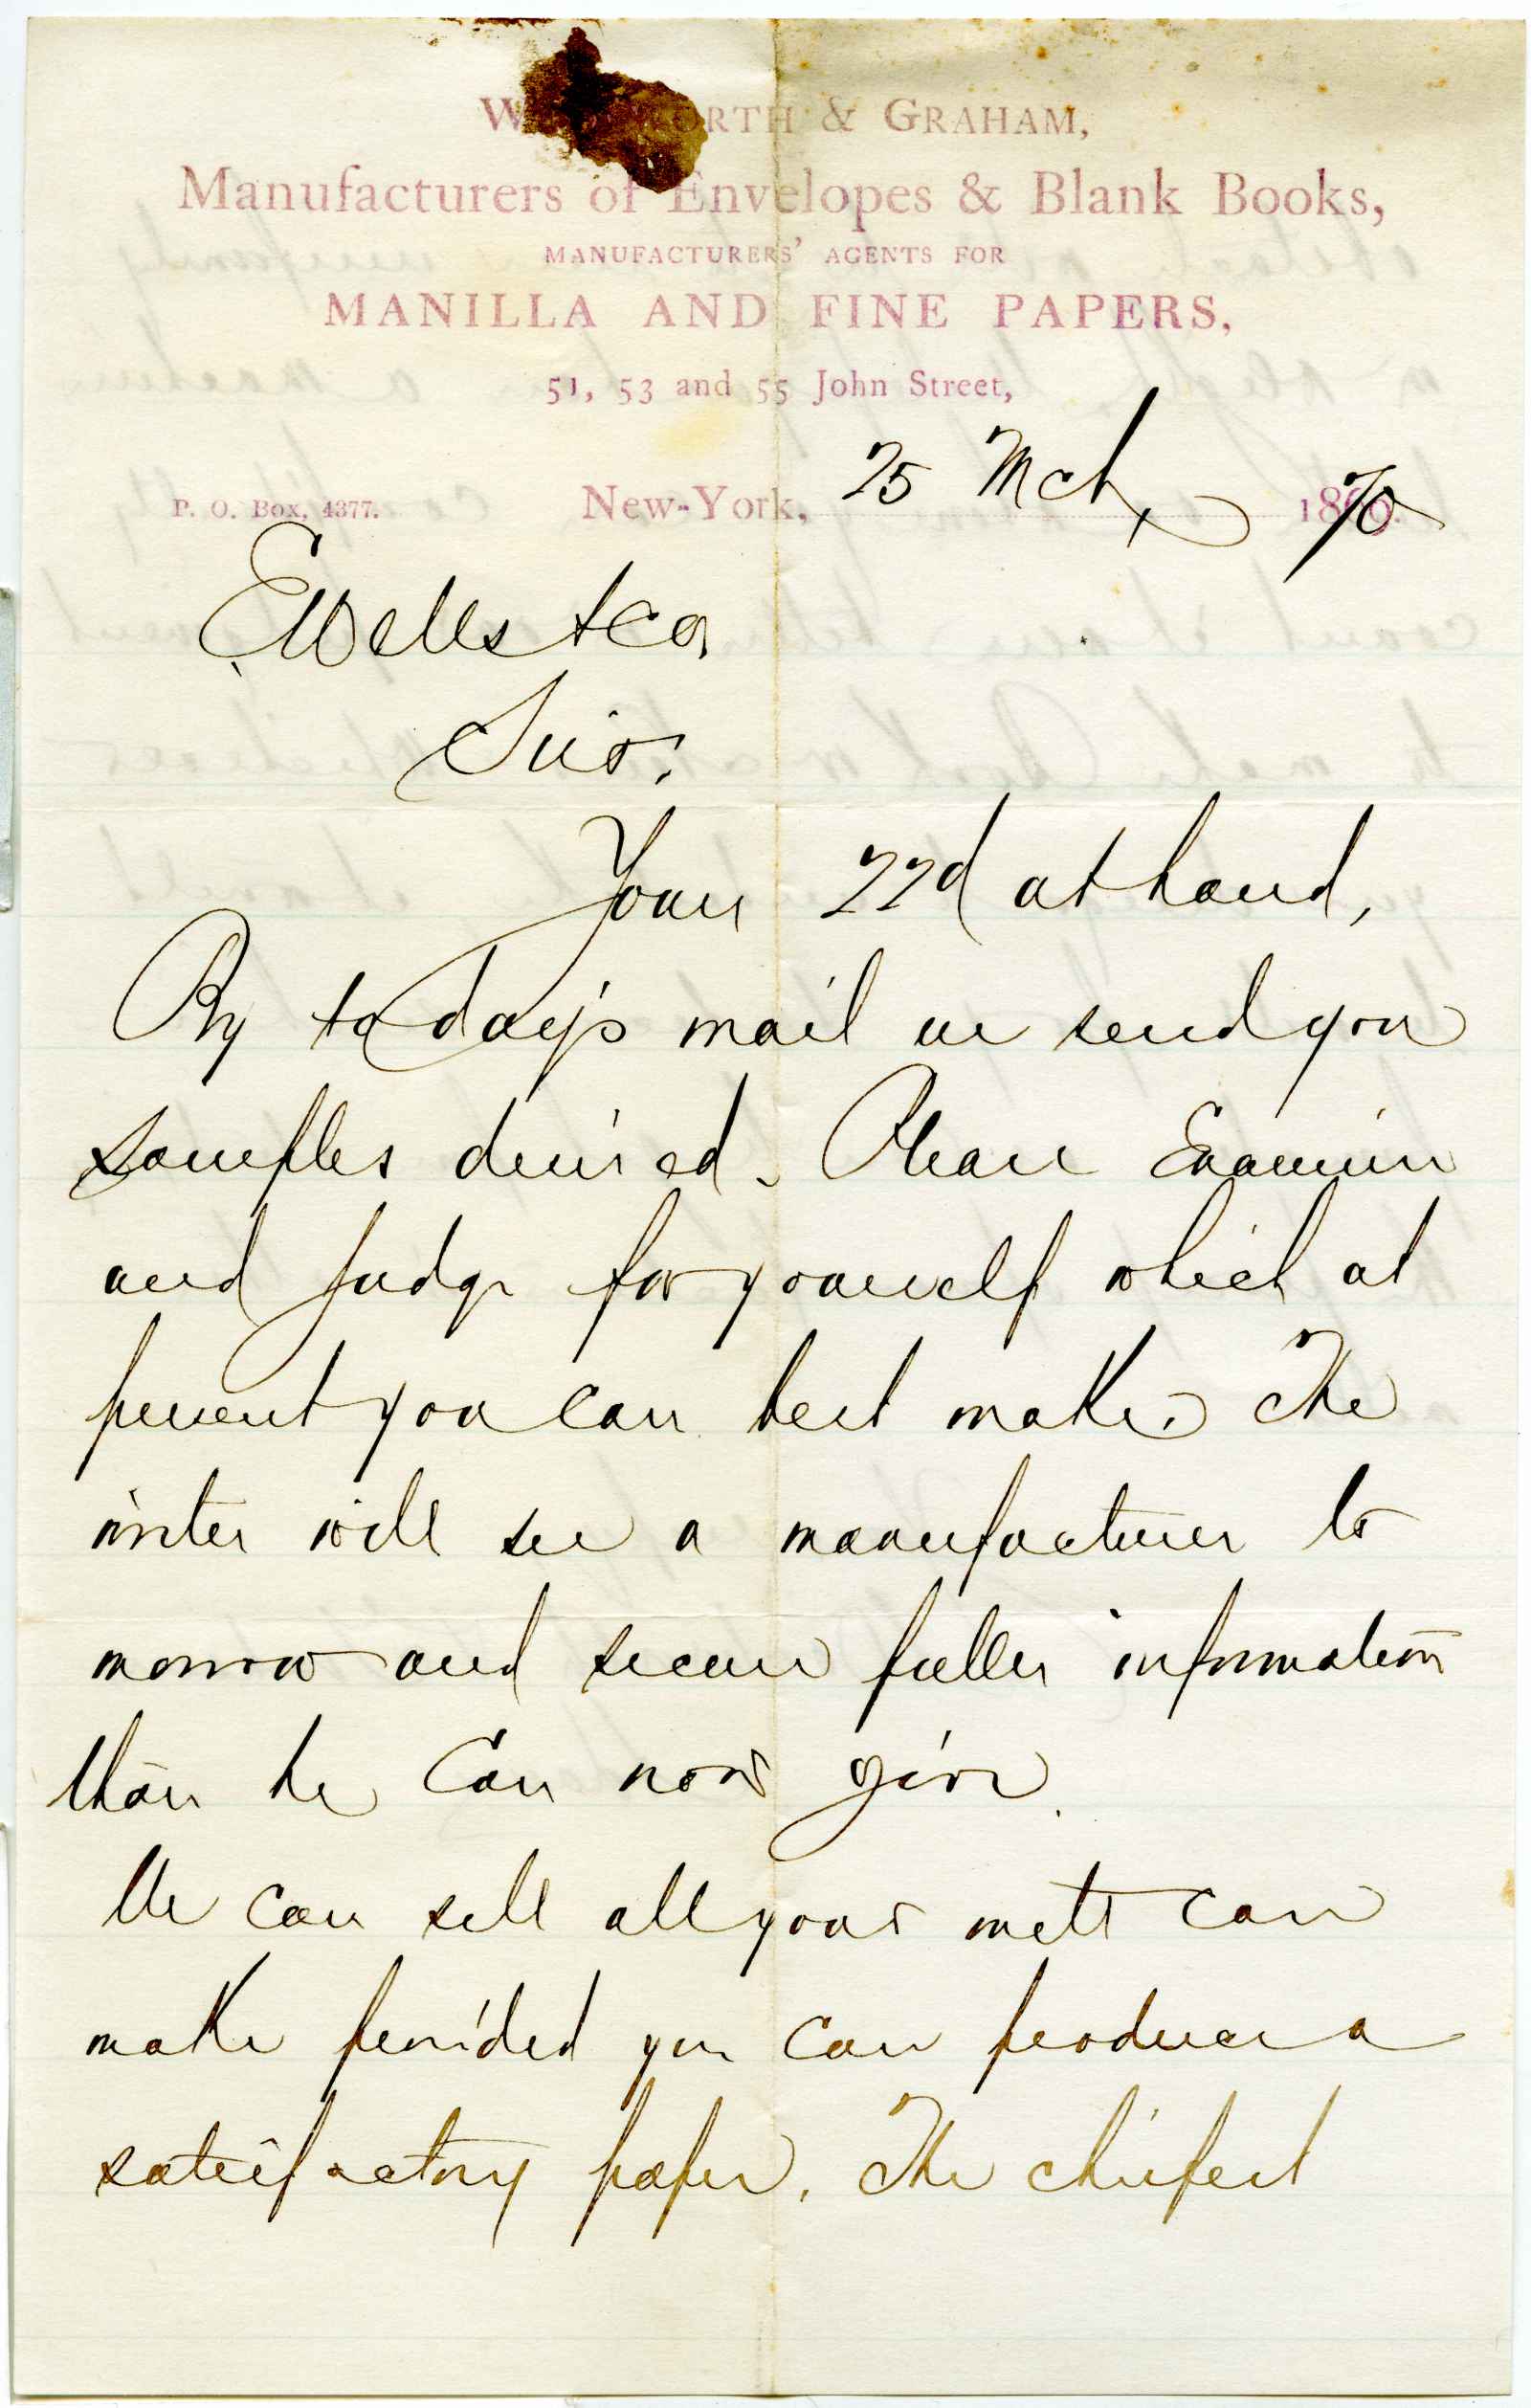 & GRAHAM,
Manufacturers of Envelopes & Blank Books,
MANUFACTURERS' AGENTS FOR
MANILLA AND FINE PAPERS,
51, 53 and 55 John Street,
P. O. Box, 4377. New-York, 25 Mch, 1870
E Wells & Co,
Sirs:
Your 22d at hand,
By to days mail we send you
samples desired. Please Examine
and judge for yourself which at
present you can best make. The
writer will see a manufacturer to
morrow and secure fuller information
than he can now give.
We can sell all your can
make provided you can produce a
satisfactory paper. The chiefest